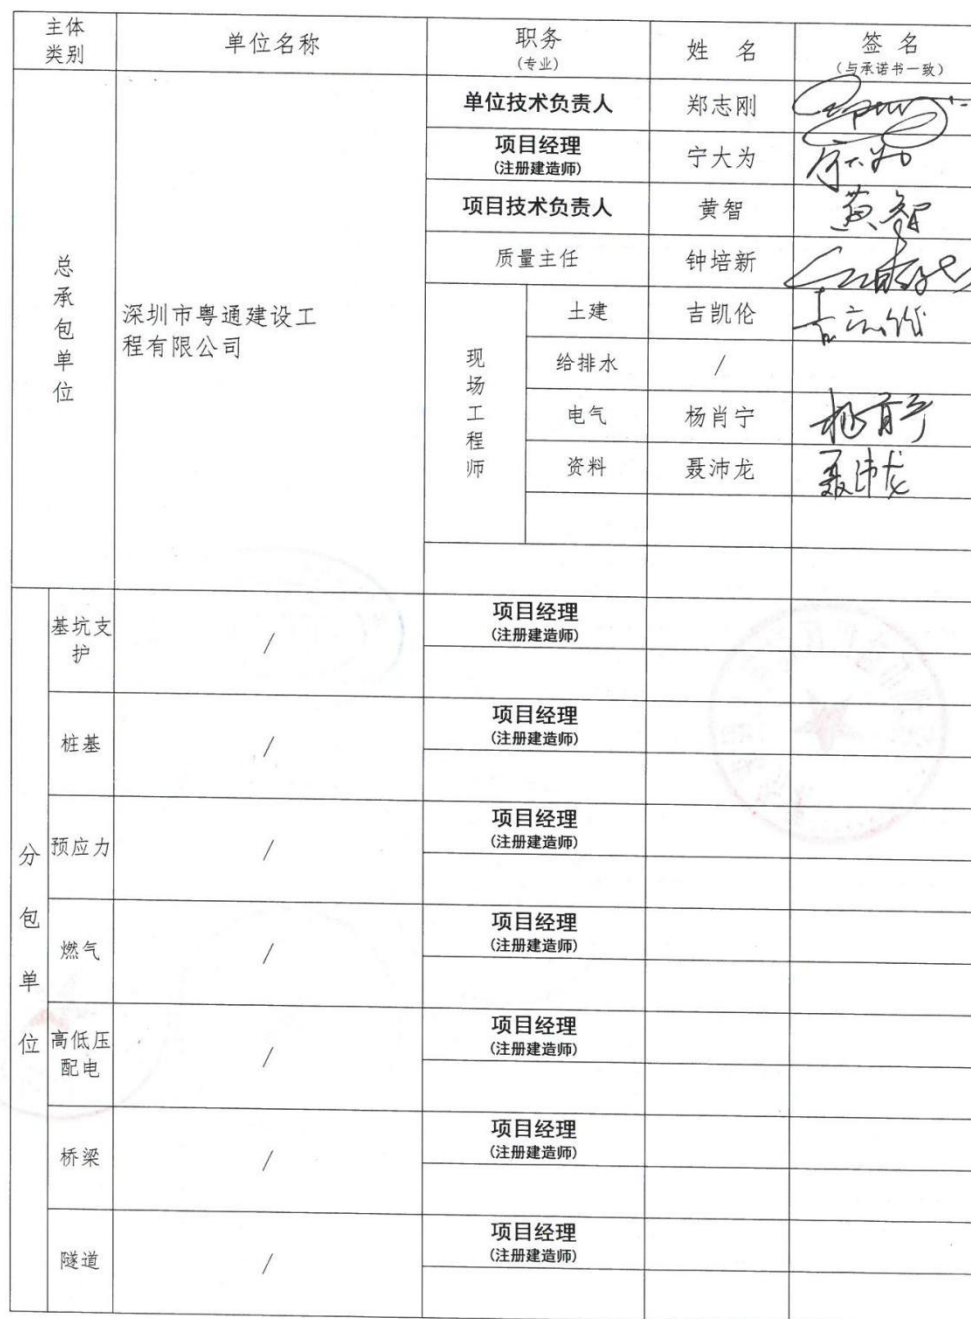 主体
类别
单位名称
职务
(专业)
姓 名
签 名
(与承诺书一致)
总承包单位
深圳市粤通建设工
程有限公司
单位技术负责人
郑志刚
项目经理
(注册建造师)
宁大为
宁大为
项目技术负责人
黄智
黄智
质量主任
钟培新
现场工程师
土建
吉凯伦
吉凯伦
给排水
/
电气
杨肖宁
杨肖宁
资料
聂沛龙
聂沛龙
分包单位
基坑支
护
/
项目经理
(注册建造师)
桩基
/
项目经理
(注册建造师)
预应力
/
项目经理
(注册建造师)
燃气
/
项目经理
(注册建造师)
高低压
配电
/
项目经理
(注册建造师)
桥梁
/
项目经理
(注册建造师)
隧道
/
项目经理
(注册建造师)